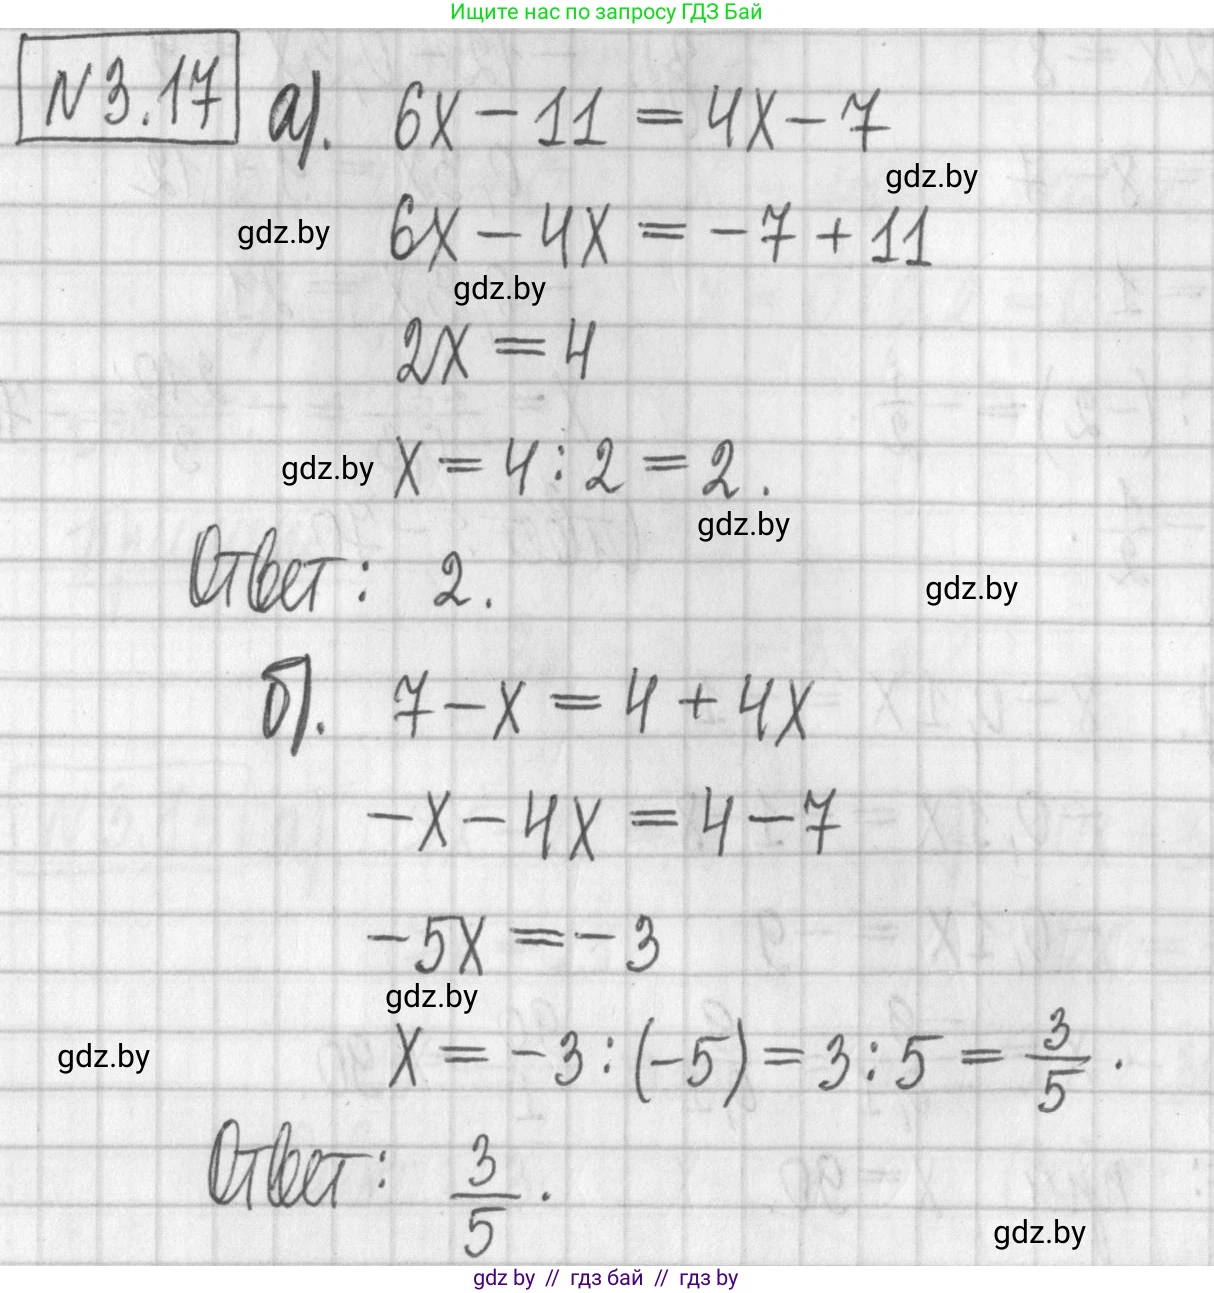 Ищите нас по запросу ГДЗ Бай
N 3.17 а). 6x - 11 = 4x - 7
gdz.by
gdz.by 6x - 4x = -7 + 11
gdz.by
2x = 4
gdz.by x = 4 : 2 = 2.
gdz.by
Ответ: 2.
gdz.by
б). 7 - x = 4 + 4x
-x - 4x = 4 - 7
-5x = -3
gdz.by
gdz.by x = -3 : (-5) = 3 : 5 = 3/5.
Ответ: 3/5.
gdz.by
gdz by // гдз бай // гдз by